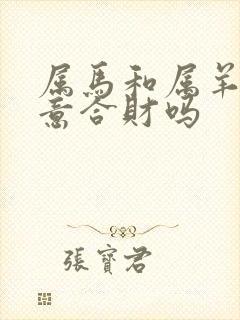 属馬和属羊
意合財吗
張寶君